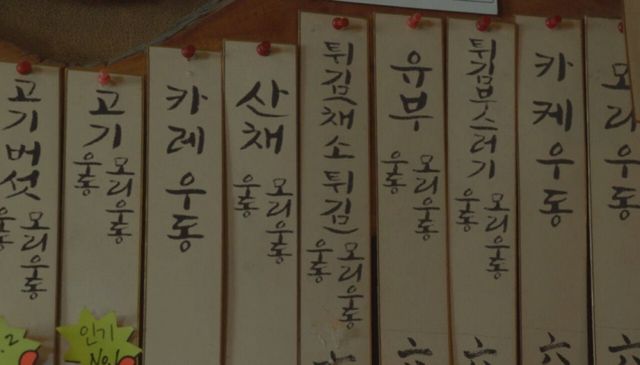 고기버섯
모리우동
우동
.2
고기
모리우동
우동
인기
No.1
카레우동
산채
모리우동
우동
튀김(채소튀김)
모리우동
우동
유부
모리우동
우동
六
튀김부스러기
모리우동
우동
六
카케우동
六
모리우동
六